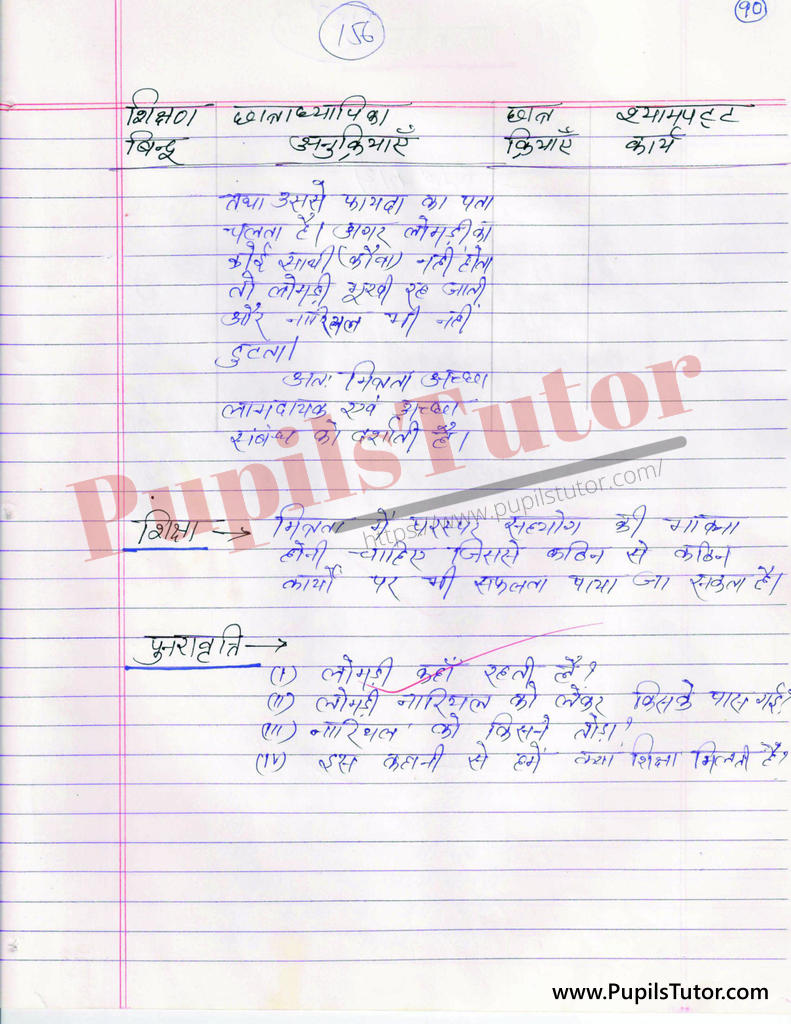 156
90
शिक्षण छात्राध्यापिका छात्र श्यामपट्ट
बिन्दू अनुक्रियाएँ क्रियाएँ कार्य
तथा उससे फायदा का पता
चलता है। अगर लोमड़ी का
कोई साथी (कौवा) नहीं होता
तो लोमड़ी भूखी रह जाती
और नारियल भी नहीं
टुटता।
अतः मित्रता अच्छा
लाभदायक एवं अच्छा
संबंध को दर्शाती है।
PupilsTutor
https://www.pupilstutor.com/
शिक्षा → मित्रता में परस्पर सहयोग की भावना
होनी चाहिए जिससे कठिन से कठिन
कार्यों पर भी सफलता पाया जा सकता है।
पुनरावृत्ति →
(I) लोमड़ी कहाँ रहती है?
(II) लोमड़ी नारियल को लेकर किसके पास गई?
(III) नारियल को किसने तोड़ा?
(IV) इस कहानी से हमें क्या शिक्षा मिलती है?
www.PupilsTutor.com